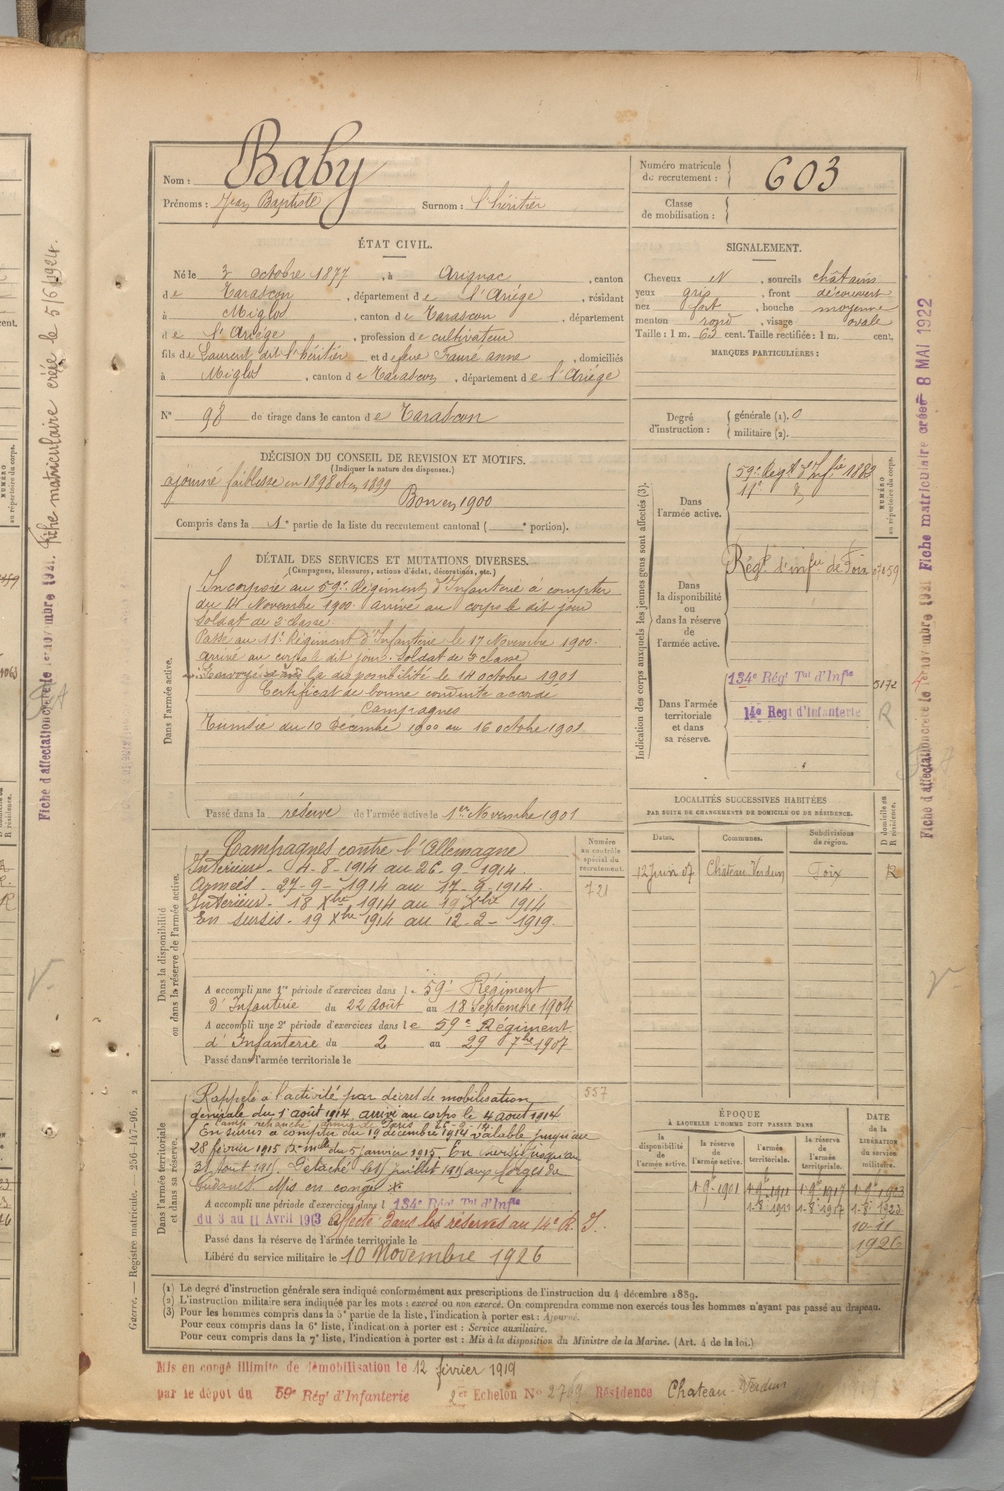 Nom : Baby
Prénoms : Jean Baptiste Surnom : l'héritier
Numéro matricule du recrutement : 603
Classe de mobilisation :
ÉTAT CIVIL.
Né le 3 octobre 1877, à Arignac, canton
de Tarascon, département de l'Ariége, résidant
à Miglos, canton de Tarascon, département
de l'Ariége, profession de cultivateur
fils de Laurent dit l'héritier et de feue Faure anne, domiciliés
à Miglos, canton de Tarascon, département de l'Ariége
N° 98 de tirage dans le canton de Tarascon
SIGNALEMENT.
Cheveux N, sourcils châtains
yeux gris, front découvert
nez fort, bouche moyenne
menton rond, visage ovale
Taille : 1 m. 63 cent. Taille rectifiée : 1 m. cent.
MARQUES PARTICULIÈRES :
Degré d'instruction : générale (1). 0
militaire (2).
DÉCISION DU CONSEIL DE REVISION ET MOTIFS.
(Indiquer la nature des dispenses.)
ajourné faiblesse en 1898 et en 1899
Bon en 1900
Compris dans la 1e partie de la liste du recrutement cantonal ( e portion).
DÉTAIL DES SERVICES ET MUTATIONS DIVERSES.
(Campagnes, blessures, actions d'éclat, décorations, etc.)
Dans l'armée active.
Incorporé au 59e Régiment d'Infanterie à compter
du 14 Novembre 1900. arrivé au corps le dit jour
soldat de 2e classe
Passé au 11e Régiment d'Infanterie le 17 Novembre 1900.
arrivé au corps le dit jour. Soldat de 2e classe
Renvoyé dans la disponibilité le 14 octobre 1901
Certificat de bonne conduite accordé
Campagnes
Tunisie du 10 Décembre 1900 au 16 octobre 1901
Passé dans la réserve de l'armée active le 1er Novembre 1901
Indication des corps auxquels les jeunes gens sont affectés (3).
NUMÉRO au répertoire du corps.
Dans l'armée active.
59e Regt d'Infie 1883
11e
Dans la disponibilité ou dans la réserve de l'armée active.
Régt d'infie de Foix
Dans l'armée territoriale et dans sa réserve.
134e Régt Tal d'Infie 5172
14e Regt d'Infanterie R
LOCALITÉS SUCCESSIVES HABITÉES
PAR SUITE DE CHANGEMENTS DE DOMICILE OU DE RÉSIDENCE.
Dates. Communes. Subdivisions de région. D domicile ou R résidence.
12 Juin 07 Château-Verdun Foix R
Dans la disponibilité ou dans la réserve de l'armée active.
Numéro au contrôle spécial du recrutement.
721
Campagnes contre l'Allemagne
Intérieur - 4-8-1914 au 26-9-1914.
Armées - 27-9-1914 au 17-9-1914.
Intérieur - 18 Xbre 1914 au 19 Xbre 1914
En sursis - 19 Xbre 1914 au 12-2-1919.
A accompli une 1re période d'exercices dans le 59e Régiment
d'Infanterie du 22 août au 18 Septembre 1904
A accompli une 2e période d'exercices dans le 59e Régiment
d'Infanterie du 2 au 29 7bre 1907
Passé dans l'armée territoriale le
Dans l'armée territoriale et dans sa réserve.
557
Rappelé à l'activité par décret de mobilisation
générale du 1er août 1914, arrivé au corps le 4 août 1914
En sursis à compter du 19 décembre 1914 valable jusqu'au
28 février 1915 Don mlle du 5 janvier 1915. En sursis jusqu'au
31 août 1915. Détaché le 1er juillet 1915 aux forges de
Gudanes. Mis en congé
A accompli une période d'exercices dans l 134e Régt Tal d'Infie
du 3 au 11 Avril 1913 Affecté dans les réserves au 14e R. I.
Passé dans la réserve de l'armée territoriale le
Libéré du service militaire le 10 Novembre 1926
ÉPOQUE À LAQUELLE L'HOMME DOIT PASSER DANS
la disponibilité de l'armée active. la réserve de l'armée active. l'armée territoriale. la réserve de l'armée territoriale.
DATE DE LA LIBÉRATION DU SERVICE MILITAIRE.
1. 9bre 1901 1. 9bre 1911 1. 9bre 1917 1. 9bre 1923
10-11
1926
(1) Le degré d'instruction générale sera indiqué conformément aux prescriptions de l'instruction du 4 décembre 1889.
(2) L'instruction militaire sera indiquée par les mots : exercé ou non exercé. On comprendra comme non exercés tous les hommes n'ayant pas passé au drapeau.
(3) Pour les hommes compris dans la 5e partie de la liste, l'indication à porter est : Ajourné.
Pour ceux compris dans la 6e liste, l'indication à porter est : Service auxiliaire.
Pour ceux compris dans la 7e liste, l'indication à porter est : Mis à la disposition du Ministre de la Marine. (Art. 4 de la loi.)
Mis en congé illimité de démobilisation le 12 février 1919
par le dépôt du 59e Régt d'Infanterie 2er Echelon No 2769 Résidence Chateau-Verdun
Guerre. — Registre matricule. — 256-147-96.
Fiche d'affectation créée le 1er novembre 1921 Fiche matriculaire créée 8 MAI 1922
Fiche d'affectation créée le 1er novembre 1921. fiche matriculaire créée le 5/6/1924.